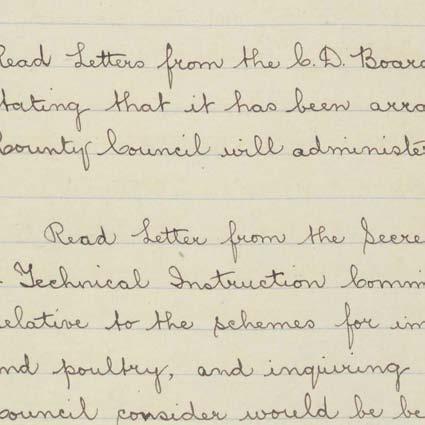 Read Letters from the C. D. Board
stating that it has been arra
County Council will administe
Read Letter from the Secre
Technical Instruction Comm
relative to the schemes for im
and poultry, and inquiring
Council consider would be be